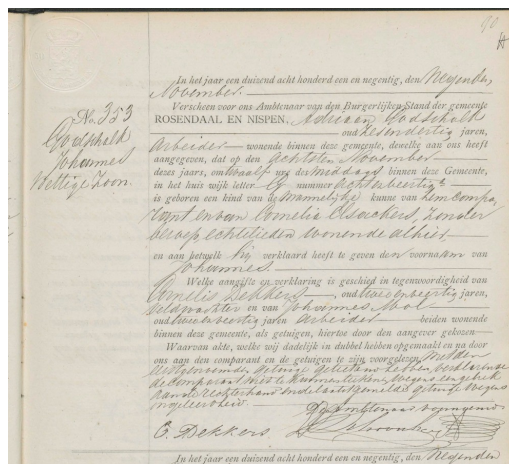 90
No. 353
Godschald
Johannes
Wettige Zoon.
In het jaar een duizend acht honderd een en negentig, den Negenden
November.
Verscheen voor ons Ambtenaar van den Burgerlijken Stand der gemeente
ROSENDAAL EN NISPEN, Adriaan Godschald
oud zesendertig jaren,
Arbeider wonende binnen deze gemeente, dewelke aan ons heeft
aangegeven, dat op den achtsten November
dezes jaars, om twaalf ure des middags binnen deze Gemeente,
in het huis wijk letter G nummer achtenveertig
is geboren een kind van de Mannelijke kunne van hem compa
rant en van Cornelia Elsackers, zonder
beroep echtelieden wonende alhier
en aan hetwelk hij verklaard heeft te geven den voornaam van
Johannes
Welke aangifte en verklaring is geschied in tegenwoordigheid van
Cornelis Dekkers oud tweeenveertig jaren,
veldwachter en van Johannes Mol
oud tweeenveertig jaren arbeider beiden wonende
binnen deze gemeente, als getuigen, hiertoe door den aangever gekozen
Waarvan akte, welke wij dadelijk in dubbel hebben opgemaakt en na door
ons aan den comparant en de getuigen te zijn voorgelezen, met den
eerstgenoemden getuige geteekend hebben, verklarende
de comparant niet te kunnen teekenen wegens een gebrek
aan de rechterhand en de laatstgemelde getuige wegens
ongeleerdheid.
De Ambtenaar voornoemd
C. Dekkers
In het jaar een duizend acht honderd een en negentig, den Negenden